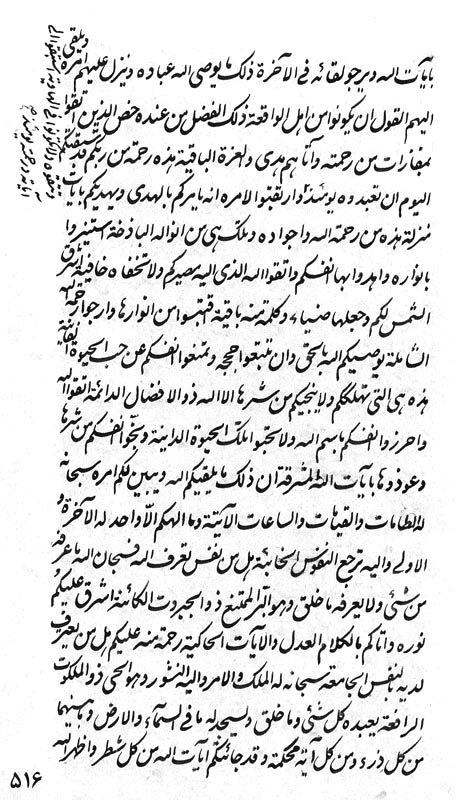 بآیات الله ویرجو لقائه فی الآخرة ذلک ما یوصی الله عباده وینزل علیهم امره ویلقی
الیهم القول ان کونوا من اهل الواقعة ذلک الفضل من عنده خص الذین اتقوا
بمفازات من رحمته وآتاهم هدی والعزة الباقیة هذه رحمة من ربکم قد سبقتکم
الیوم ان تعبدوه یومئذ وارتقبوا لامره انه یامرکم بالهدی ویهدیکم بآیات
منزلة هذه من رحمة الله واجواده وتلک هی من انواله الباذخة استنیروا
بانواره واهدوا بها انفسکم واتقوا الله الذی الیه مصیرکم ولا تخفاه خافیة اشرق
الشمس لکم وجعلها ضیاء وکلمة منه باقیة فتهبوا من انوارها وارجوا رحمة الله
الشاملة یوصیکم الله بالحق وان تتبعوا حججه وتمنعوا انفسکم عن حب الحیوة الفانیة
هذه هی التی تهلککم ولا ینجیکم من شرها الا الله ذو الافضال الدائمة اتقوا الله
واحرزوا انفسکم باسم الله ولا تحبوا تلک الحیوة الدانیة ونجوا انفسکم من شرها
وعوذوها بآیات الله المشرقة ان ذلک ما یلقیکم الله ویبین لکم امره سبحانه
له الطامات والقیمات والساعات الآتیة وما الهکم الا واحد له الآخرة و
الاولی والیه ترجع النفوس الخائبة هل من نفس تعرف الله فسبحان الله ما عرفه
من شئ ولا یعرفه ما خلق وهو البر الممتنع ذو الجبروت الکائنة اشرق علیکم
نوره وآتاکم بالکلام العدل والآیات الحاکیة رحمة منه علیکم هل من یعترف
لدیه بالنفس الجامعة سبحانه له الملک والامر والیه النشور وهو الحی ذو الملکوت
الرافعة یعبده کل شئ وما خلق ویسجد له ما فی السمآء والارض وما بینهما
من کل ذرء ومن کل آیة محکمة وقد جائتکم آیات الله من کل شطر واظهر الله
۵۱۶